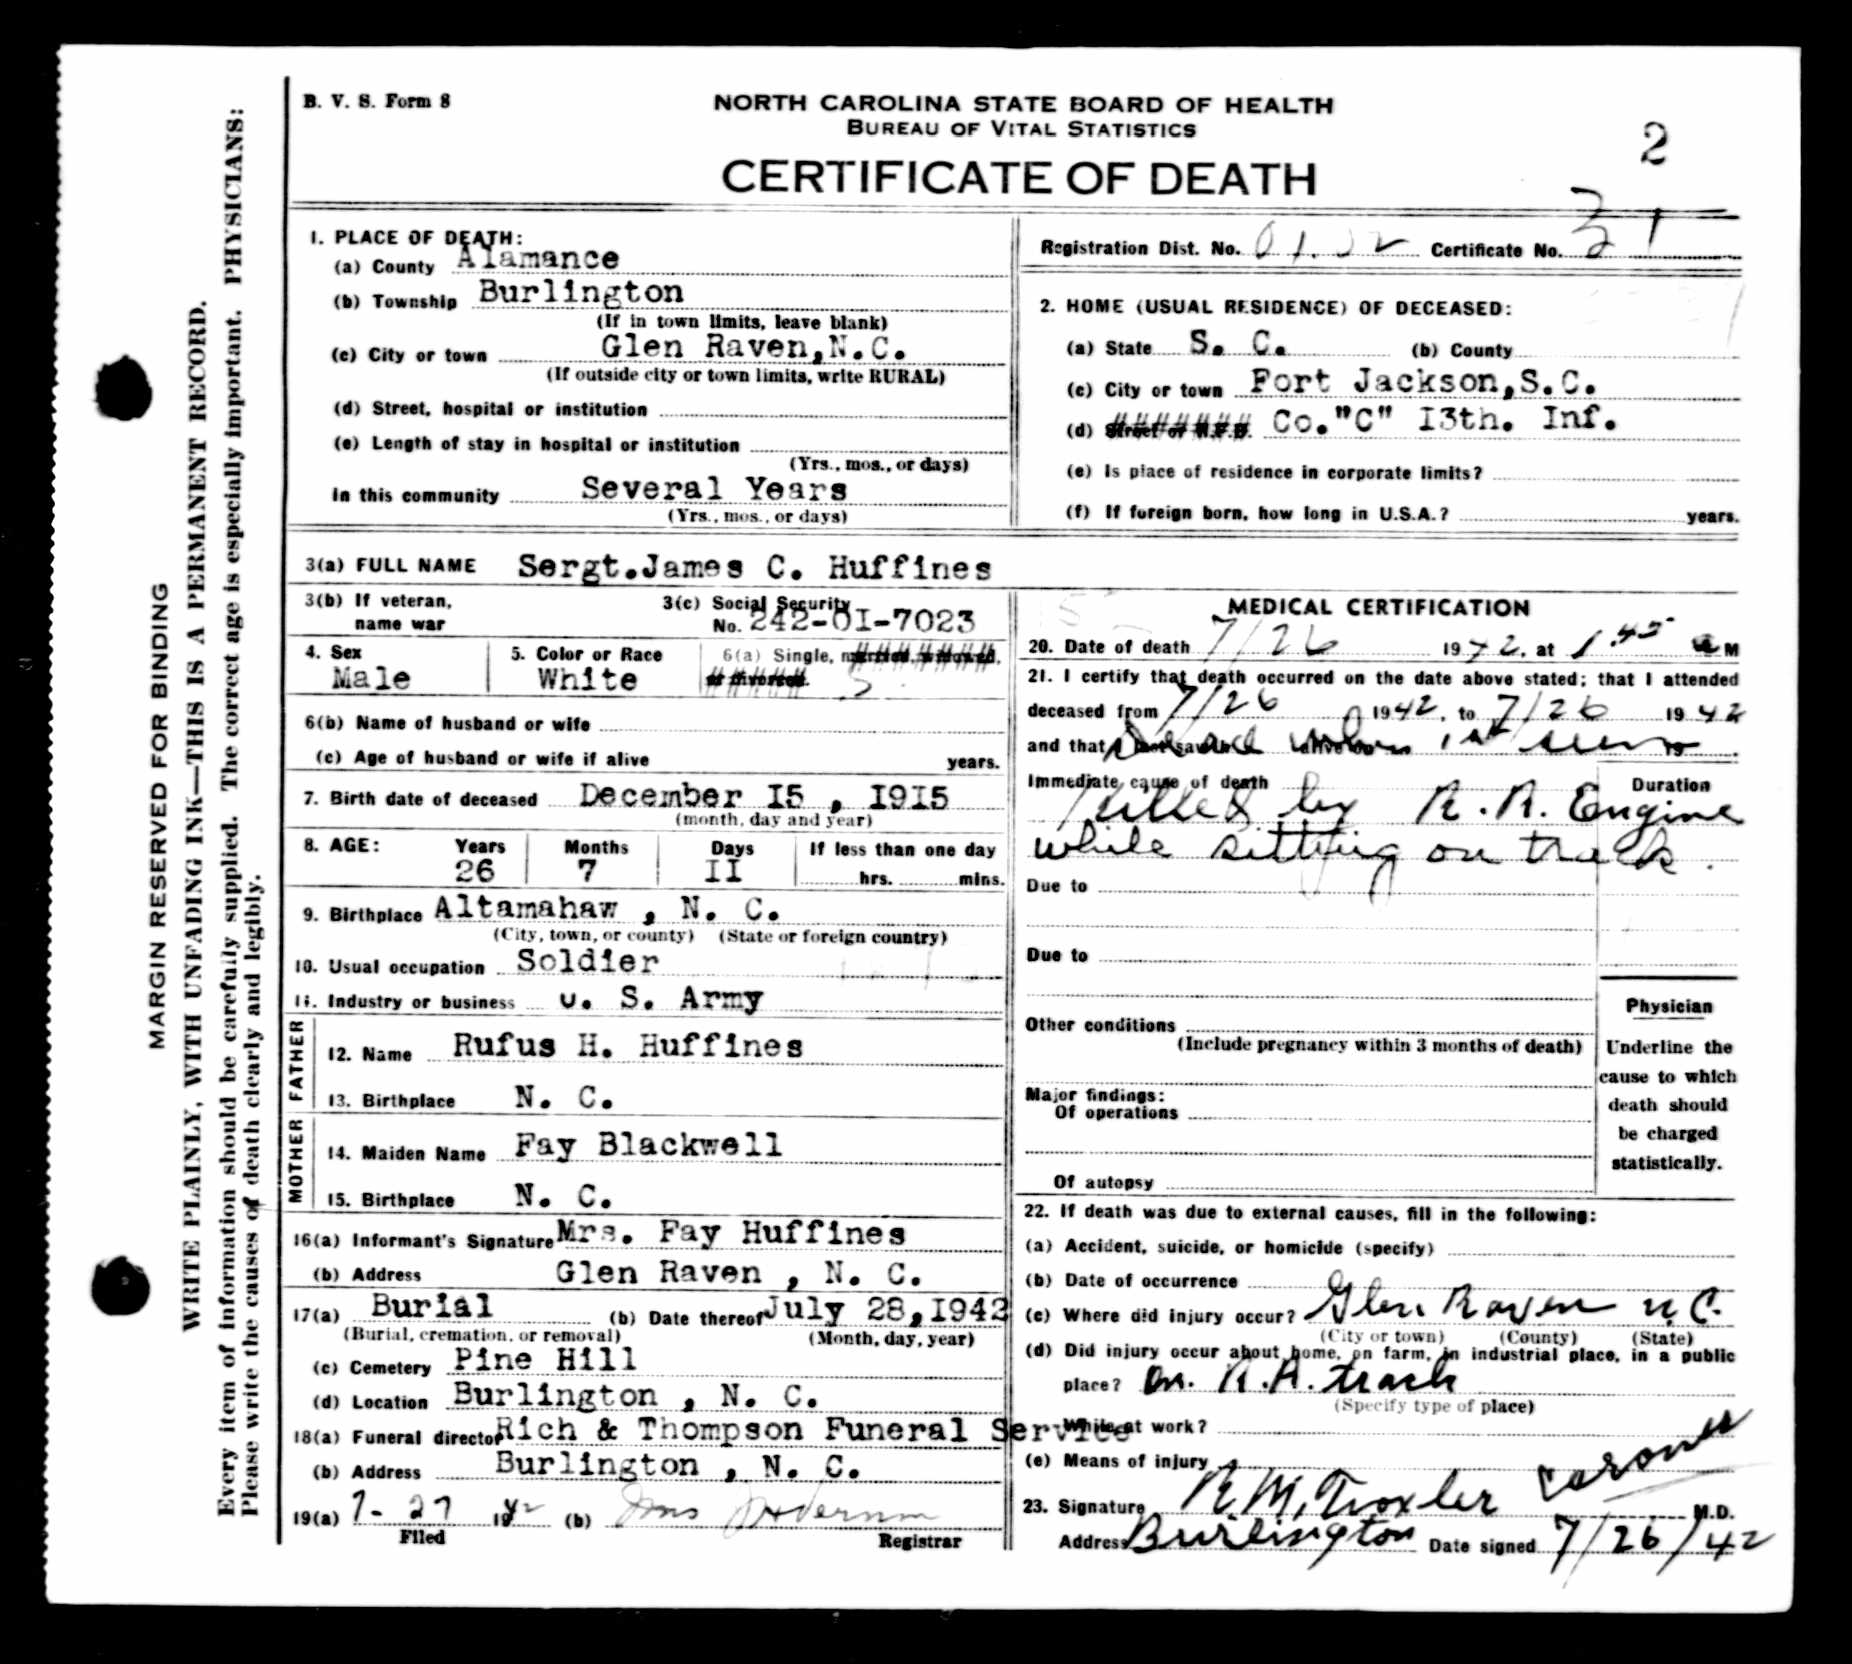 B. V. S. Form 8
NORTH CAROLINA STATE BOARD OF HEALTH
BUREAU OF VITAL STATISTICS
CERTIFICATE OF DEATH
2
MARGIN RESERVED FOR BINDING
WRITE PLAINLY, WITH UNFADING INK—THIS IS A PERMANENT RECORD.
Every item of information should be carefully supplied. The correct age is especially important. PHYSICIANS:
Please write the causes of death clearly and legibly.
1. PLACE OF DEATH:
(a) County Alamance
(b) Township Burlington
(If in town limits, leave blank)
(c) City or town Glen Raven,N.C.
(If outside city or town limits, write RURAL)
(d) Street, hospital or institution
(e) Length of stay in hospital or institution
(Yrs., mos., or days)
In this community Several Years
(Yrs., mos., or days)
Registration Dist. No. Certificate No. 31
2. HOME (USUAL RESIDENCE) OF DECEASED:
(a) State S. C. (b) County
(c) City or town Fort Jackson,S.C.
(d) Co."C" I3th. Inf.
(e) Is place of residence in corporate limits?
(f) If foreign born, how long in U.S.A.? years.
3(a) FULL NAME Sergt.James C. Huffines
3(b) If veteran, name war
3(c) Social Security No. 242-OI-7023
4. Sex Male
5. Color or Race White
6(a) Single, married, widowed, or divorced. S
6(b) Name of husband or wife
(c) Age of husband or wife if alive years.
7. Birth date of deceased December I5 , I9I5
(month, day and year)
8. AGE: Years Months Days If less than one day
26 7 II hrs. mins.
9. Birthplace Altamahaw , N. C.
(City, town, or county) (State or foreign country)
10. Usual occupation Soldier
11. Industry or business U. S. Army
FATHER
12. Name Rufus H. Huffines
13. Birthplace N. C.
MOTHER
14. Maiden Name Fay Blackwell
15. Birthplace N. C.
16(a) Informant's Signature Mrs. Fay Huffines
(b) Address Glen Raven , N. C.
17(a) Burial (b) Date thereof July 28,I942
(Burial, cremation, or removal) (Month, day, year)
(c) Cemetery Pine Hill
(d) Location Burlington , N. C.
18(a) Funeral director Rich & Thompson Funeral Service
(b) Address Burlington , N. C.
19(a) 7-27 1942 (b) Mrs
Filed Registrar
MEDICAL CERTIFICATION
20. Date of death 7/26 1942, at 1 45 a M
21. I certify that death occurred on the date above stated; that I attended
deceased from 7/26 1942, to 7/26 1942
and that Dead when 1st seen
Immediate cause of death Duration
Killed by R.R. Engine
while sitting on track.
Due to
Due to
Other conditions
(Include pregnancy within 3 months of death)
Major findings:
Of operations
Of autopsy
Physician
Underline the
cause to which
death should
be charged
statistically.
22. If death was due to external causes, fill in the following:
(a) Accident, suicide, or homicide (specify)
(b) Date of occurrence
(c) Where did injury occur? Glen Raven N.C.
(City or town) (County) (State)
(d) Did injury occur about home, on farm, in industrial place, in a public
place? On R.R. track
(Specify type of place)
While at work?
(e) Means of injury
23. Signature R.M. Troxler Coroner M.D.
Address Burlington Date signed 7/26/42